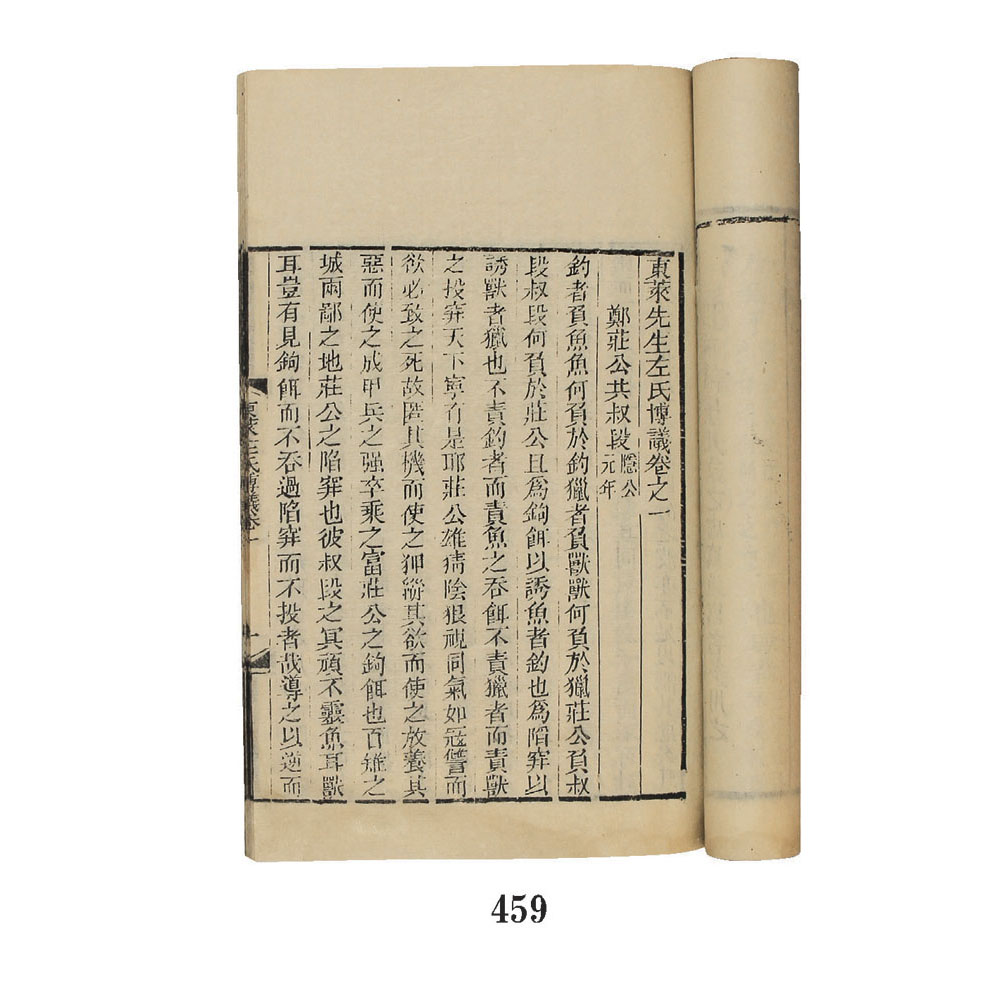 東萊先生左氏博議卷之一
鄭莊公共叔段 隱公元年
釣者負魚魚何負於釣獵者負獸獸何負於獵莊公負叔
段叔段何負於莊公且爲鉤餌以誘魚者釣也爲陷穽以
誘獸者獵也不責釣者而責魚之吞餌不責獵者而責獸
之投穽天下寧有是耶莊公雄猜陰狠視同氣如寇讐而
欲必致之死故匿其機而使之狎縱其欲而使之放養其
惡而使之成甲兵之强卒乘之富莊公之鉤餌也百雉之
城兩鄙之地莊公之陷穽也彼叔段之冥頑不靈魚耳獸
耳豈有見鉤餌而不吞過陷穽而不投者哉導之以逆而
東萊左氏博議卷一
459